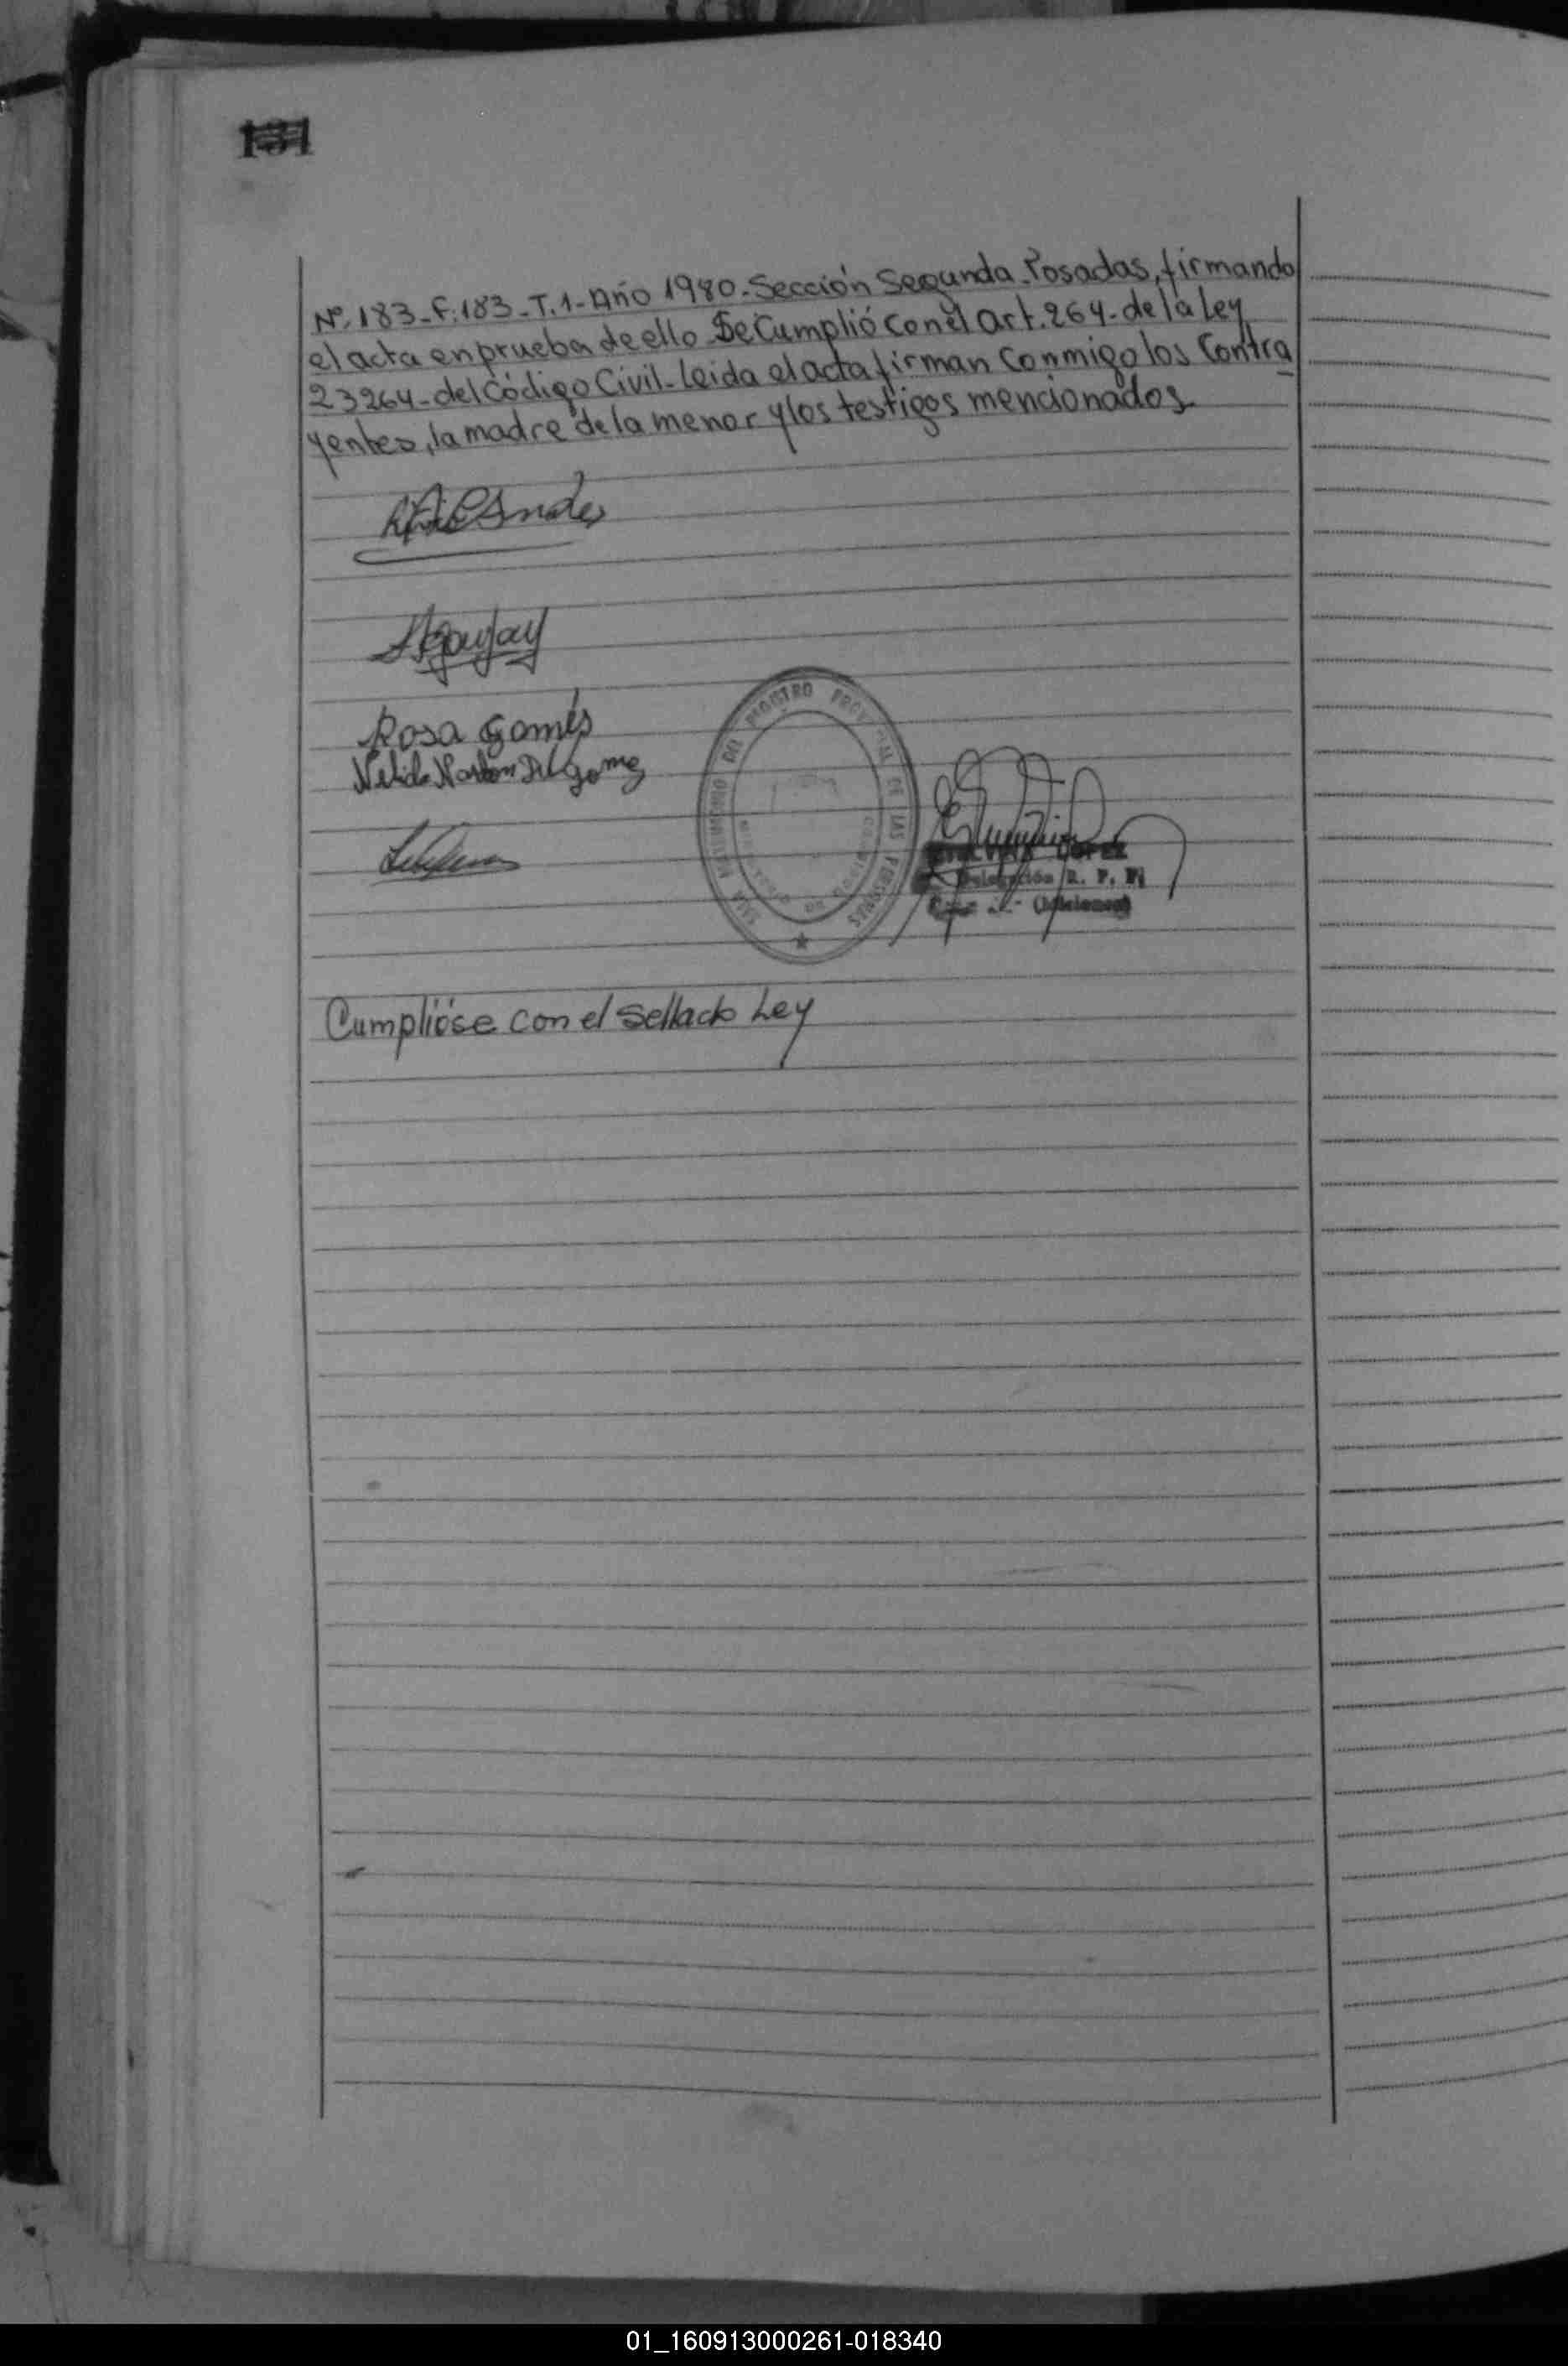 131
Nº. 183_F. 183_T. 1_Año 1980_Sección Segunda_Posadas, firmando
el acta en prueba de ello_Se Cumplió con el Art. 264_de la Ley
23264_del Código Civil_Leida el acta firman Conmigo los Contra
yentes, la madre de la menor y los testigos mencionados_
Rosa Gomés
Nelida
Gomez
REGISTRO PROVINCIAL DE LAS PERSONAS
LOPEZ
Delegación R. P. P.
(Misiones)
Cumplióse con el Sellado Ley
01_160913000261-018340